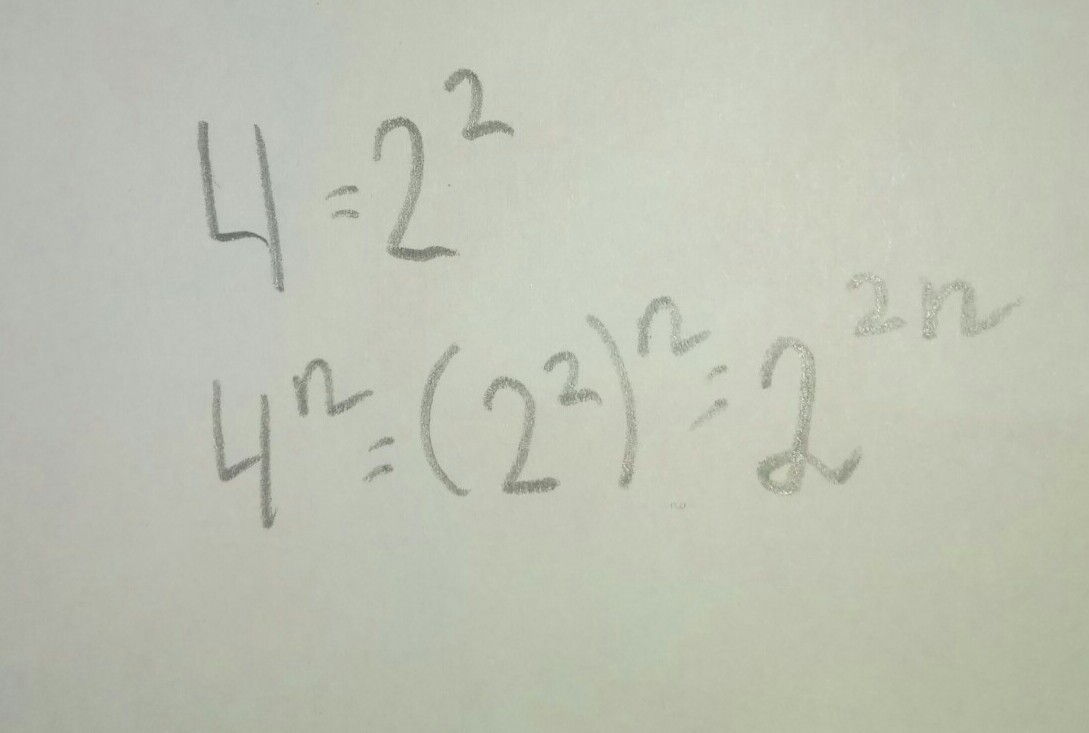 4 = 2²
4ⁿ = (2²)ⁿ = 2²ⁿ